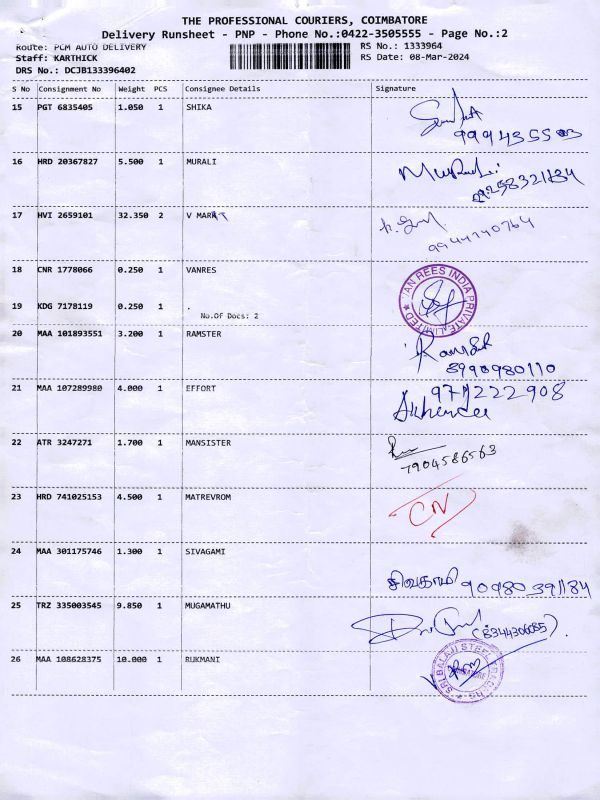 THE PROFESSIONAL COURIERS, COIMBATORE
Delivery Runsheet - PNP - Phone No.:0422-3505555 - Page No.:2
Route: PCM AUTO DELIVERY
RS No.: 1333964
Staff: KARTHICK
RS Date: 08-Mar-2024
DRS No.: DCJB133396402
S No Consignment No Weight PCS Consignee Details Signature
15 PGT 6835405 1.050 1 SHIKA
16 HRD 20367827 5.500 1 MURALI
17 HVI 2659101 32.350 2 V MART
9944740764
18 CNR 1778066 0.250 1 VANRES
VAN REES INDIA PRIVATE LIMITED
19 KDG 7178119 0.250 1 .
No.Of Docs: 2
20 MAA 101893551 3.200 1 RAMSTER
8990980110
21 MAA 107289980 4.000 1 EFFORT
22 ATR 3247271 1.700 1 MANSISTER
7904586563
23 HRD 741025153 4.500 1 MATREVROM
CN
24 MAA 301175746 1.300 1 SIVAGAMI
சிவகாமி
25 TRZ 335003545 9.850 1 MUGAMATHU
26 MAA 108628375 10.000 1 RUKMANI
SRI BALAJI STEEL TRADERS